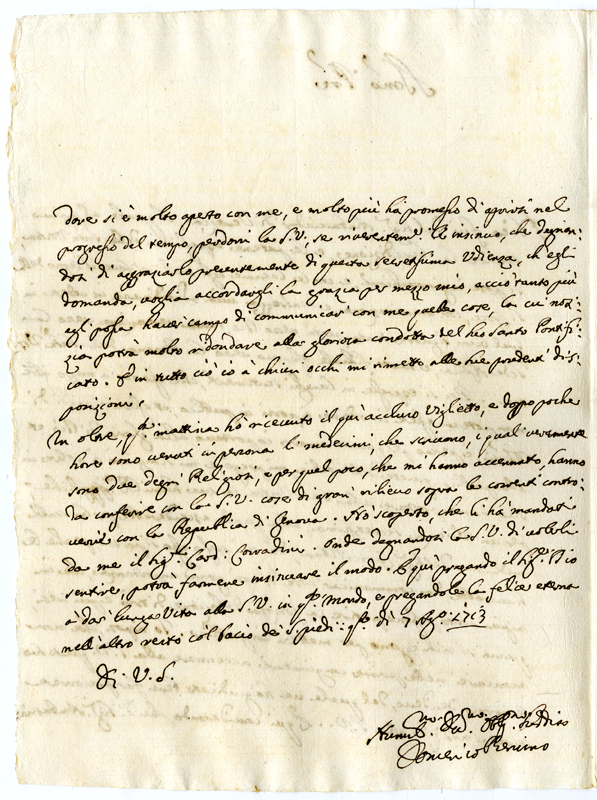 dove si è molto aperto con me, e molto più hà promesso di aprirsi nel
progresso del tempo, perdoni la S.V., se riverentem.te le insinuo, che degnan:
dosi di aggraziarlo presentemente di questa secretissima Udienza, ch'egli
domanda, voglia accordargli la grazia per mezzo mio, acciò tanto più
egli possa haver campo di communicar con me quelle cose, la cui noti:
zia potrà molto ridondare alla gloriosa condotta del suo Santo Pontifi:
cato. E in tutto ciò io à chiusi occhi mi rimetto alle sue prudenti dis:
posizioni.
In oltre, q.ta mattina hò ricevuto il quì accluso Viglietto, e doppo poche
hore sono venuti in persona li medesimi, che scrivono, i quali veramente
sono due degni Religiosi, e per quel poco, che mi hanno accennato, hanno
da conferire con la S.V. cose di gran rilievo sopra le correnti contro:
versie con la Republica di Genova. Hò scoperto, che li hà mandati
da me il Sig.r Card. Corradini. Onde degnandosi la S.V. di volerli
sentire, potrà farmene insinuare il modo. E quì pregando il Sig.r Dio
à dar lunga Vita alla S.V. in q.to Mondo, e pregandole la felice eterna
nell'altro resto col bacio dei S. piedi: q.to dì 7 Ag.o 1713
Di V.S.
Humil.mo Dev.mo Obl.mo Suddito
Domenico